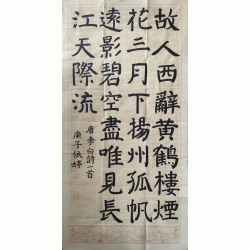 故人西辭黃鶴樓煙
花三月下揚州孤帆
遠影碧空盡唯見長
江天際流
唐李白詩一首
庚子依婷